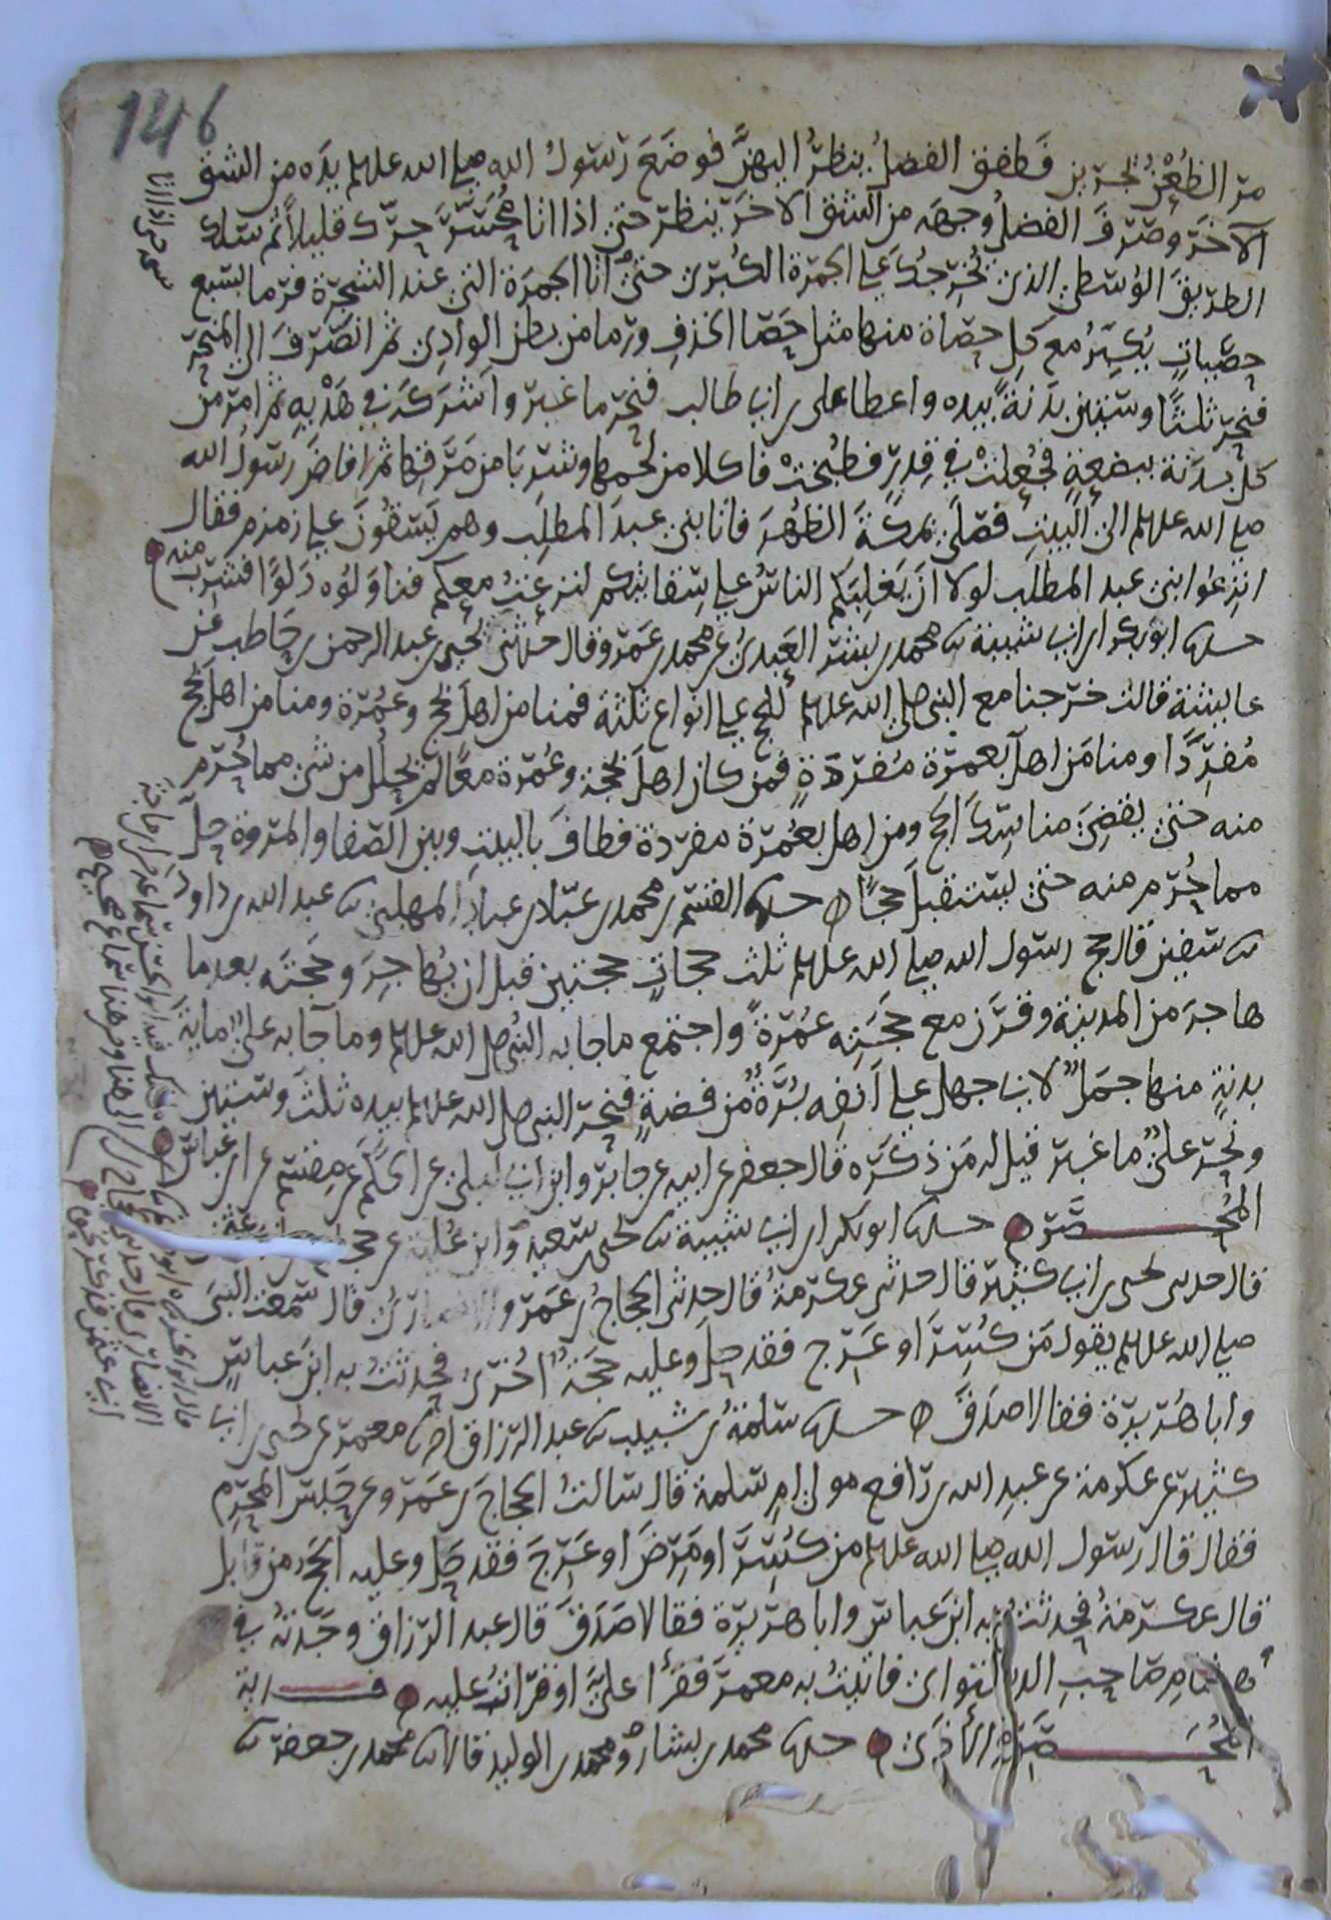 146
مر الظعن يجرين فطفق الفضل ينظر اليهن فوضع رسول الله صلى الله عليه وسلم يده من الشق
الآخر وصرف الفضل وجهه من الشق الآخر ينظر حتى اذا اتا محسر حرك قليلا ثم سلك
الطريق الوسطى الذي تخرجك على الجمرة الكبرى حتى اتا الجمرة التي عند الشجرة فرما بسبع
حصيات يكبر مع كل حصاة منها مثل حصا الخذف ورما من بطن الوادي ثم انصرف الى المنحر
فنحر ثلثا وستين بدنة بيده واعطا على بن ابي طالب فنحر ما غبر واشركه في هديه ثم امر من
كل بدنة ببضعة فجعلت في قدر فطبخت فاكلا من لحمها وشربا من مرقها ثم افاض رسول الله
صلى الله عليه وسلم الى البيت فصلى بمكة الظهر فاتا بني عبد المطلب وهم يسقون على زمزم فقال
انزعوا بني عبد المطلب لولا ان يغلبكم الناس على سقايتكم لنزعت معكم فناولوه دلوا فشرب منه
حدثنا ابو بكر بن ابي شيبة ثنا محمد بن بشر العبدي عن محمد بن عمرو قال حدثني يحيى بن عبد الرحمن بن حاطب عن
عايشة قالت خرجنا مع النبي صلى الله عليه وسلم للحج على انواع ثلثة فمنا من اهل بحج وعمرة ومنا من اهل بحج
مفردا ومنا من اهل بعمرة مفردة فمن كان اهل بحجة وعمرة معا لم يحلل من شي مما حرم
منه حتى يقضي مناسك الحج ومن اهل بعمرة مفردة فطاف بالبيت وبين الصفا والمروة حل
مما حرم منه حتى يستقبل حجا حدثنا القسم بن محمد بن عباد بن عباد المهلبي ثنا عبد الله بن داود
ثنا سفين قال حج رسول الله صلى الله عليه وسلم ثلث حجات حجتين قبل ان يهاجر وحجته بعد ما
هاجر من المدينة وقرن مع حجته عمرة واجتمع ما جا به النبي صلى الله عليه وسلم وما جا به علي ماية
بدنة منها جمل لابي جهل على انفه برة من فضة فنحر النبي صلى الله عليه وسلم بيده ثلث وستين
ونحر علي ما غبر قيل له من ذكره قال جعفر عن ابيه عن جابر وابن ابي ليلى عن الحكم عن مقسم عن ابن عباس
المحصر حدثنا ابو بكر بن ابي شيبة ثنا يحيى بن سعيد وابن علية عن حجاج بن ابي عثمن
قال حدثني يحيى بن ابي كثير قال حدثني عكرمة قال حدثني الحجاج بن عمرو الانصاري قال سمعت النبي
صلى الله عليه وسلم يقول من كسر او عرج فقد حل وعليه حجة اخرى فحدثت به ابن عباس
وابا هريرة فقالا صدق حدثنا سلمة بن شبيب ثنا عبد الرزاق انا معمر عن يحيى بن ابي
كثير عن عكرمة عن عبد الله بن رافع مولى ام سلمة قال سالت الحجاج بن عمرو عن حبس المحرم
فقال قال رسول الله صلى الله عليه وسلم من كسر او مرض او عرج فقد حل وعليه الحج من قابل
قال عكرمة فحدثت به ابن عباس وابا هريرة فقالا صدق قال عبد الرزاق وجدته في
صاحب الدستوائي فاتيت به معمر فقرأ علي او قرات عليه فدية
المحصر الأذى حدثنا محمد بن بشار ومحمد بن الوليد قالا ثنا محمد بن جعفر ثنا